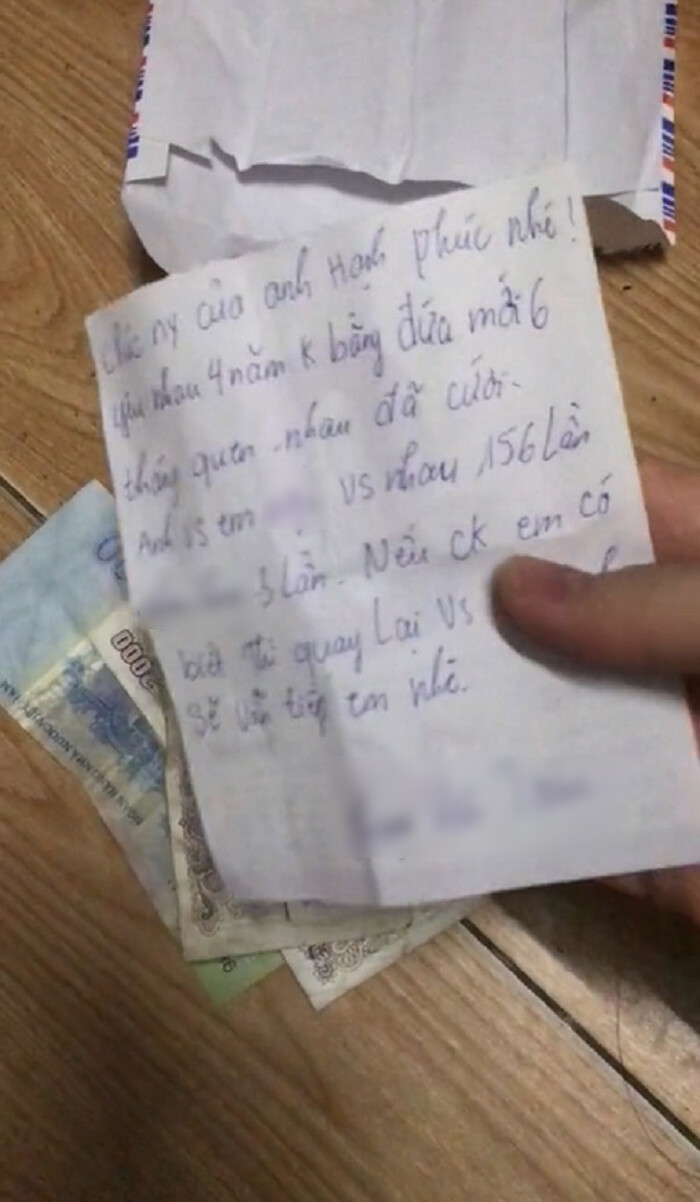 Chúc ny của anh Hạnh phúc nhé!
yêu nhau 4 năm k bằng đứa mới 6
tháng quen nhau đã cưới.
Anh vs em vs nhau 156 lần
3 lần. Nếu ck em có
biết thì quay lại vs
sẽ vẫn tiếp em nhé.
2000
NGÂN HÀNG NHÀ NƯỚC VIỆT NAM